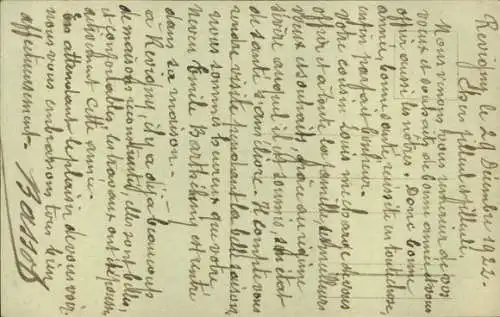 Revigny le 29 Décembre 1922.
Chers filleul et filleule,
Nous venons vous remercier de vos
vœux et souhaits de bonne année et vous
offrir aussi les nôtres. Donc bonne
année, bonne santé, réussite en toute chose,
enfin parfait bonheur.
Votre cousin Louis me charge de vous
offrir et à toute la famille, ses meilleurs
vœux et souhaits, grâce au régime
sévère auquel il est soumis, son état
de santé s'améliore. Il compte vous
rendre visite pendant la belle saison,
nous sommes heureux que votre
neveu Emile Barthélemy est rentré
dans sa maison.
à Revigny, il y a déjà beaucoup
de maisons reconstruites, elles sont belles,
et confortables, les travaux ont été poussés
activement cette année.
En attendant le plaisir de vous voir
nous vous embrassons tous bien
affectueusement.